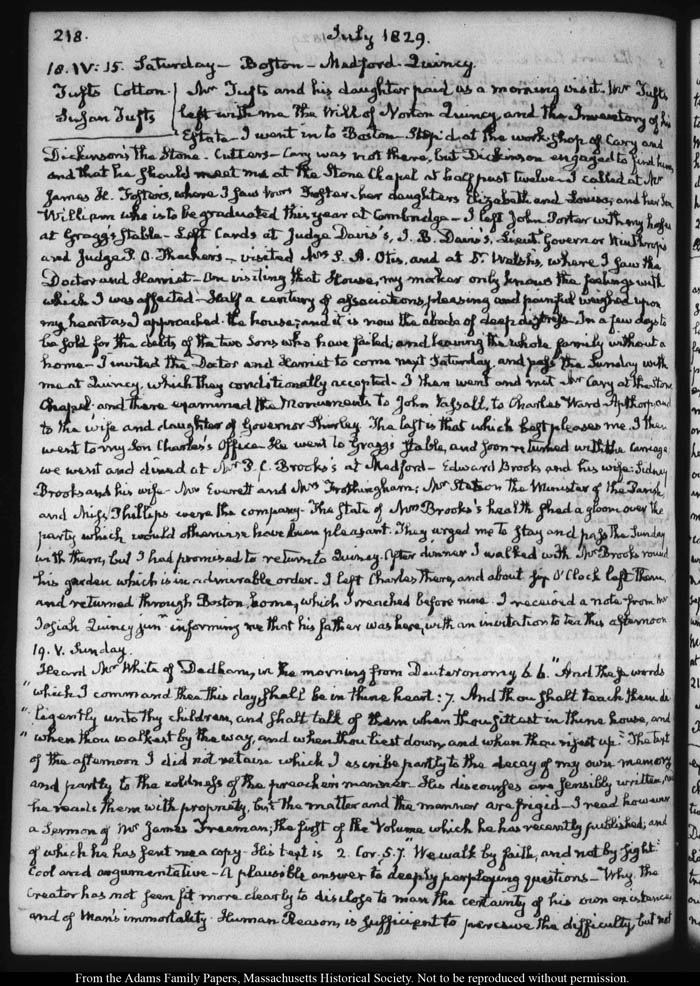 218. July 1829.
18. IV: 15. Saturday — Boston — Medford — Quincy.
Tufts Cotton Mr Tufts and his daughter paid us a morning visit. Mr Tufts
Susan Tufts left with me the Will of Norton Quincy and the Inventory of his
Estate — I went in to Boston — Stop'd at the work shop of Cary and
Dickinson, the Stone-Cutters — Cary was not there, but Dickinson engaged to find him,
and that he should meet me at the Stone Chapel at half past twelve — I called at Mr
James H. Foster's, where I saw Mrs Foster her daughters Elizabeth and Louisa, and her Son
William who is to be graduated this year at Cambridge — I left John Porter with my horses
at Gragg's stable — Left Cards at Judge Davis's, I. B. Davis's, Lieut. Governor Winthrop's
and Judge P. O. Thacher's — visited Mrs P. A. Otis, and at Dr Welsh's, where I saw the
Doctor and Harriet — On visiting that House, my maker only knows the feelings with
which I was affected — Half a century of associations, pleasing and painful weighed upon
my heart as I approached the house; and it is now the abode of deep distress — In a few days to
be sold for the debts of the two Sons who have failed, and leaving the whole family without a
home — I invited the Doctor and Harriet to come next Saturday, and pass the Sunday with
me at Quincy, which they conditionally accepted — I then went and met Mr Cary at the Stone
Chapel; and there examined the Monuments to John Vassall, to Charles Ward Apthorp, and
to the wife and daughter of Governor Shirley. The last is that which best pleases me. I then
went to my Son Charles's Office — He went to Gragg's Stable, and soon returned with the carriage
we went and dined at Mr P. C. Brooks's at Medford — Edward Brooks and his wife: Sidney
Brooks and his wife — Mrs Everett and Mrs Frothingham; Mr Stetson the Minister of the Parish,
and Miss Phillips were the company — The State of Mrs Brooks's health shed a gloom over the
party which would otherwise have been pleasant. They urged me to stay and pass the Sunday
with them, but I had promised to return to Quincy. After dinner I walked with Mr Brooks round
his garden which is in admirable order — I left Charles there, and about six O'Clock left them,
and returned through Boston, home, which I reached before nine. I received a note from Mr
Josiah Quincy junr. informing me that his father was here, with an invitation to tea this afternoon
19. V. Sunday.
Heard Mr White of Dedham, in the morning from Deuteronomy 6. 6. "And these words
"which I command thee this day, shall be in thine heart: 7. And thou shalt teach them di
"ligently unto thy children, and shalt talk of them when thou sittest in thine house, and
"when thou walkest by the way, and when thou liest down, and when thou risest up." The text
of the afternoon I did not retain which I ascribe partly to the decay of my own memory
and partly to the coldness of the preacher's manner — His discourses are sensibly written,
he reads them with propriety, but the matter and the manner are frigid — I read however
a Sermon of Mr James Freeman; the first of the Volume which he has recently published; and
of which he has sent me a copy — His text is 2. Cor. 5. 7. "We walk by faith, and not by sight"
Cool and argumentative — A plausible answer to deeply perplexing questions — Why the
Creator has not seen fit more clearly to disclose to man the certainty of his own existence
and of Man's immortality. Human Reason, is sufficient to perceive the difficulty, but not
From the Adams Family Papers, Massachusetts Historical Society. Not to be reproduced without permission.